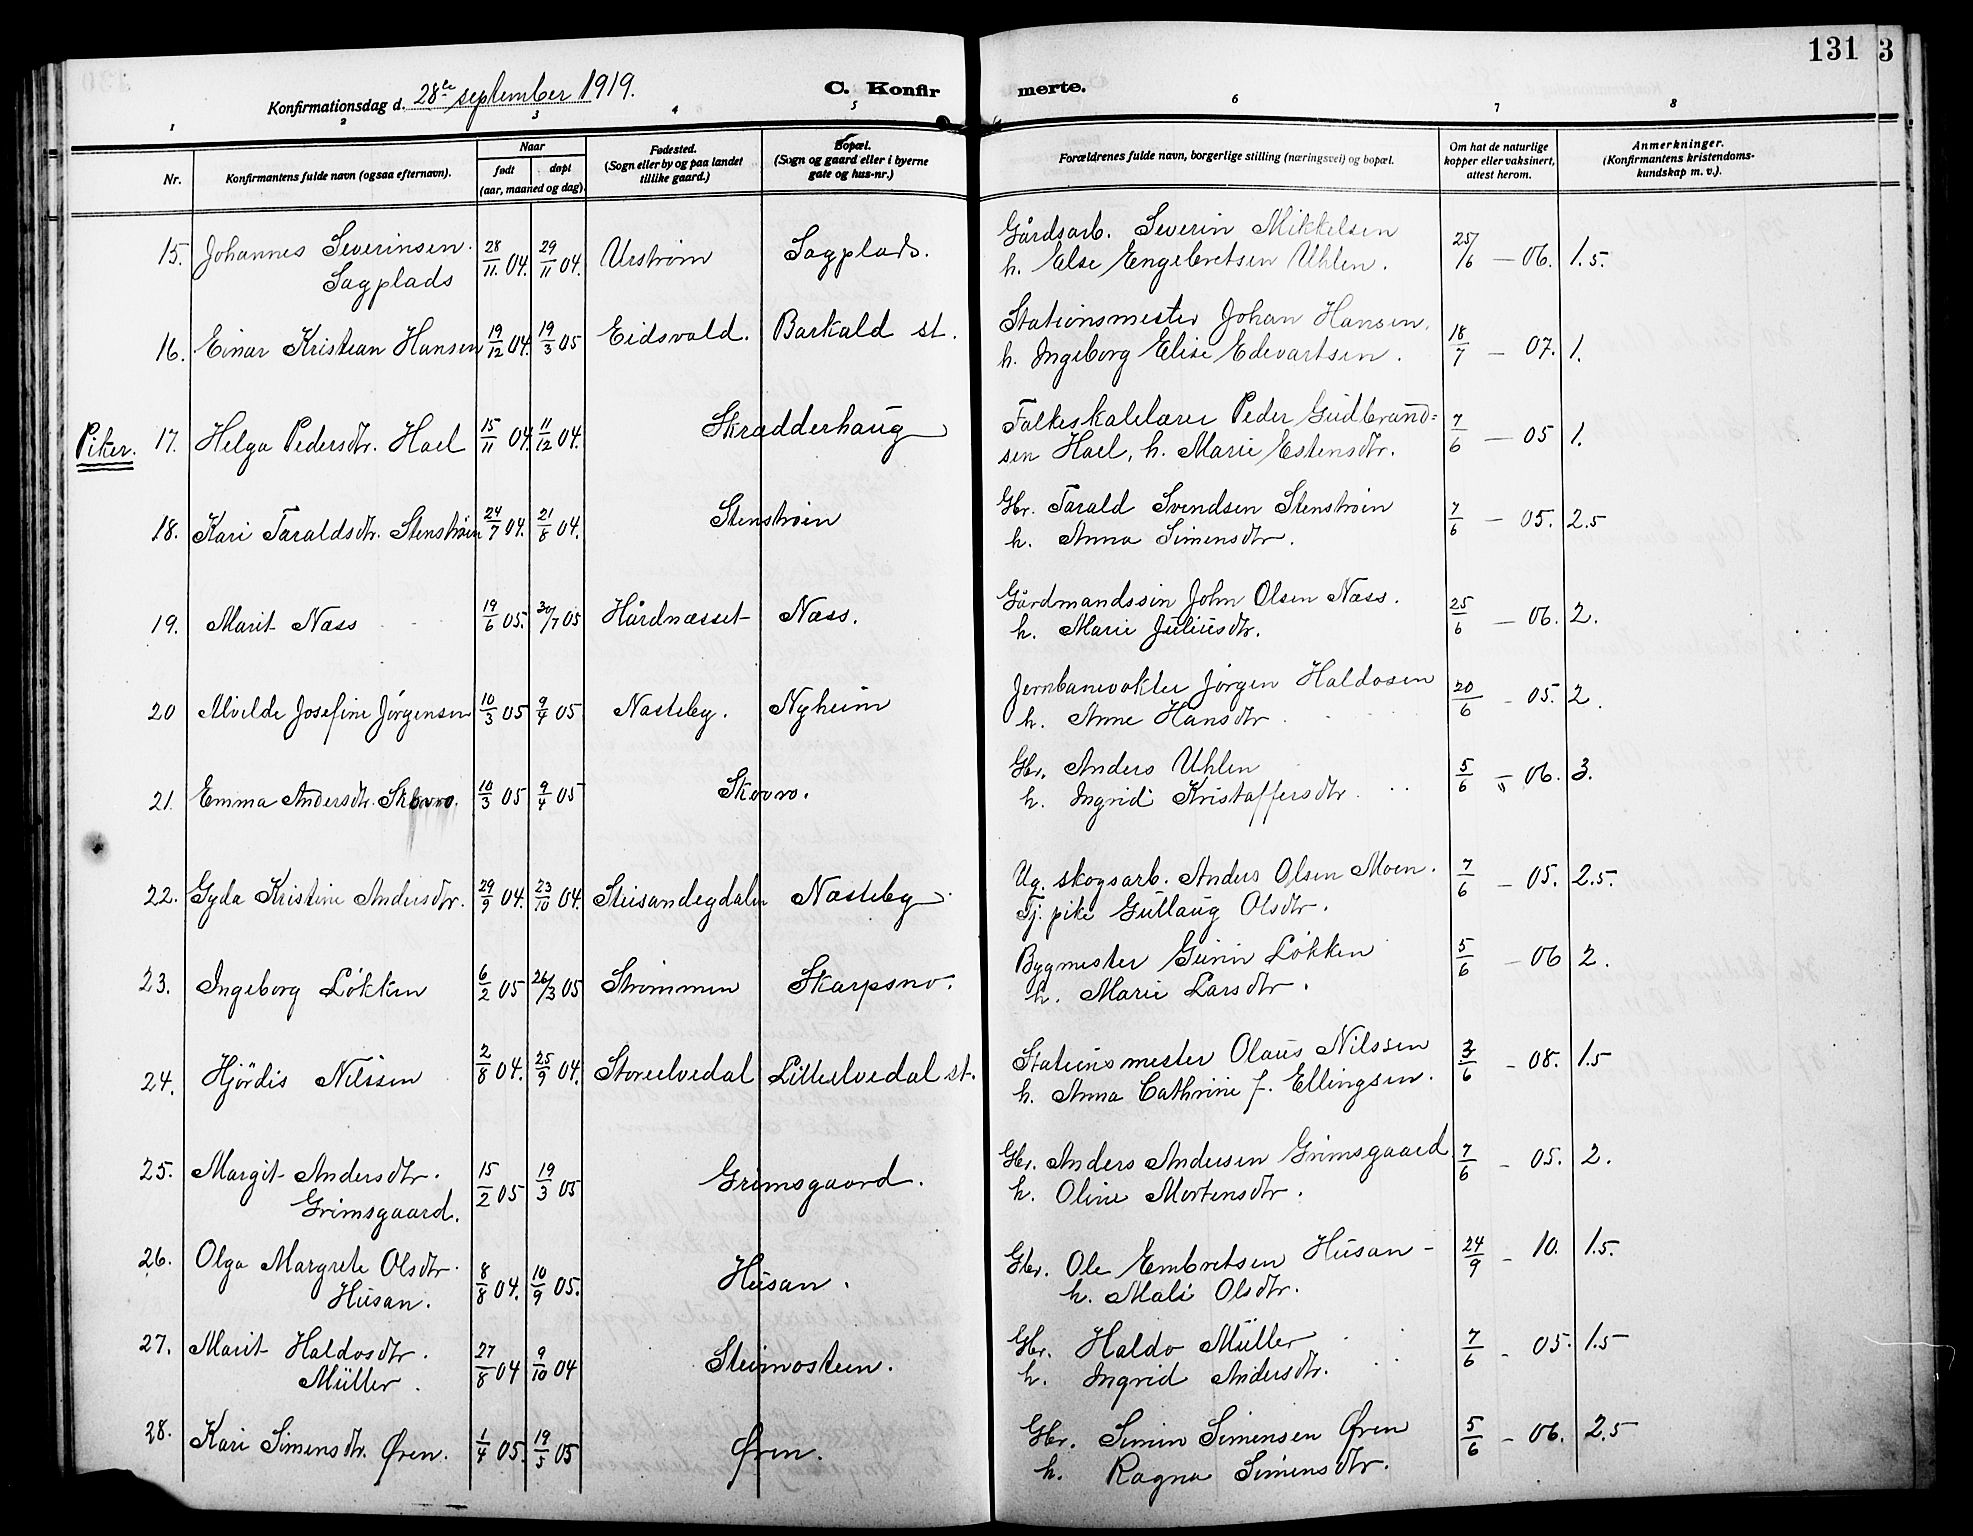 131 3
Konfirmationsdag d. 28de september 1919.
C. Konfirmerte.
1 2 3 4 5 6 7 8
Nr.
Konfirmantens fulde navn (ogsaa efternavn).
Naar
født
døpt
(aar, maaned og dag).
Fødested.
(Sogn eller by og paa landet
tillike gaard.)
Bopæl.
(Sogn og gaard eller i byerne
gate og hus-nr.)
Forældrenes fulde navn, borgerlige stilling (næringsvei) og bopæl.
Om hat de naturlige
kopper eller vaksinert,
attest herom.
Anmerkninger.
(Konfirmantens kristendoms-
kundskap m. v.).
15. Johannes Severinsen 28/11 04. 29/11 04. Urstrøm Sagplads. Gårdsarb. Severin Mikkelsen 25/6 — 06. 1.5.
Sagplads h. Else Engebretsen Uhlen.
16. Einar Kristian Hansen 19/12 04. 19/3 05 Eidsvold. Barkald st. Stationsmester Johan Hansen, 18/7 — 07. 1.
h. Ingeborg Elise Edevartsen.
Piker.
17. Helga Pedersdtr. Hoel 15/11 04. 11/12 04. Skradderhaug Folkeskolelærer Peder Gudbrand= 7/6 — 05 1.
sen Hoel, h. Marie Estensdtr.
18. Kari Taraldsdtr. Stenstrøm 24/7 04. 21/8 04. Stenstrøm Gbr. Tarald Svendsen Stenstrøm 7/6 — 05. 2.5
h. Anna Simensdtr.
19. Marit Næss 19/6 05. 30/7 05 Hårdnæsset Næss. Gårdmandssøn John Olsen Næss. 25/6 — 06. 2.
h. Marie Juliusdtr.
20 Alvilde Josefine Jørgensen 10/3 05 9/4 05 Næsteby. Nyheim Jernbanevokter Jørgen Haldosen 20/6 - 05. 2.
h. Anne Hansdtr
21. Emma Andersdtr. Skovro. 10/3 05 9/4 05 Skovro. Gbr. Anders Uhlen 5/6 — 06. 3.
h. Ingrid Kristoffersdtr.
22. Gyda Kristine Andersdtr. 29/9 04. 23/10 04. Næsteby Ug. skogsarb. Anders Olsen Moen. 7/6 — 05. 2.5.
Tj. pike Gullaug Olsdtr.
23. Ingeborg Løkken 6/2 05 26/3 05 Strømmen Skarpsno. Bygmester Løkken 5/6 — 06 2.
h. Marie Larsdtr.
24. Hjördis Nilssen 2/8 04. 25/9 04. Storelvedal Lilleelvedal st. Stationsmester Olaus Nilssen 3/6 - 08. 1.5
h. Anna Cathrine f. Ellingsen.
25. Margit Andersdtr. 15/2 05 19/3 05 Grimsgaard. Gbr. Anders Andersen Grimsgaard 7/6 - 05. 2.
Grimsgaard. h. Oline Mortensdtr.
26. Olga Margrete Olsdtr. 8/8 04. 10/9 05. Husan. Gbr. Ole Embretsen Husan - 24/9 - 10. 1.5.
Husan. h. Mali Olsdtr.
27. Marit Haldosdtr. 27/8 04 9/10 04 Steimosteen. Gbr. Haldo Müller 7/6 - 05. 1.5
Müller. h. Ingrid Andersdtr.
28. Kari Simensdtr. Øren. 1/4 05. 19/5 05 Øren. Gbr. Simen Simensen Øren 5/6 - 06. 2.5
h. Ragna Simensdtr.